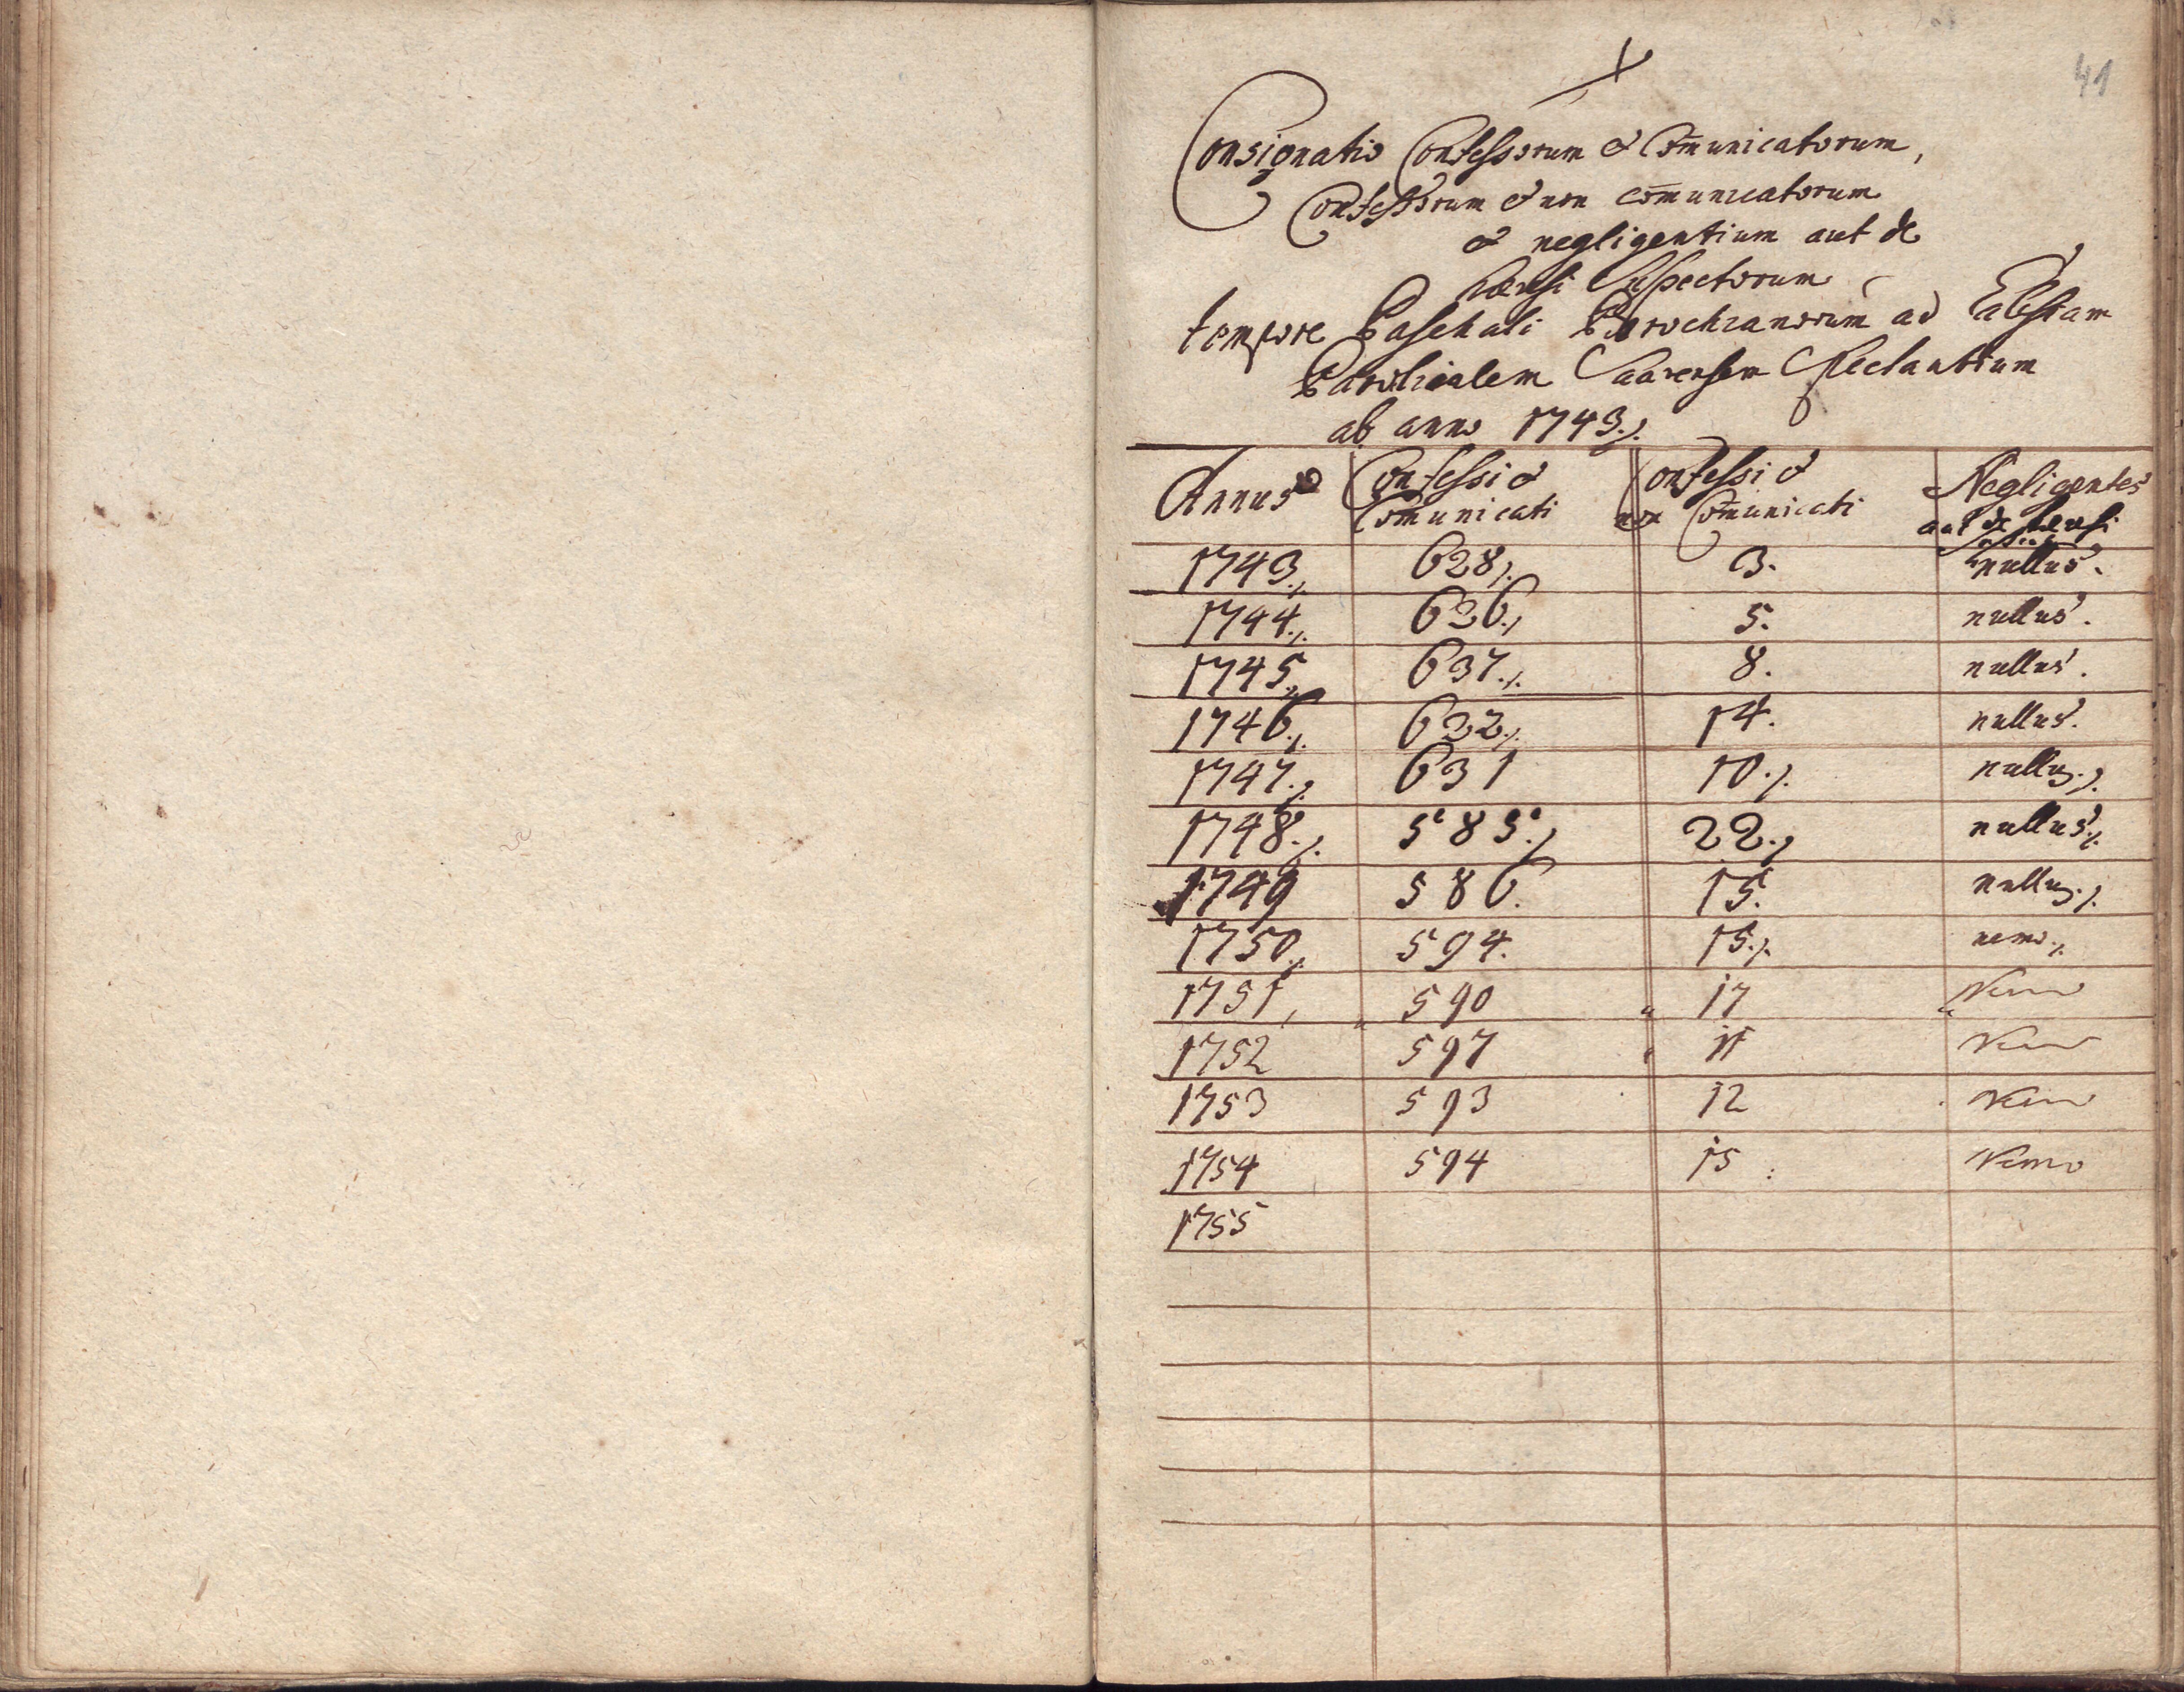 41
Consignatio Confessorum & Com̅unicatorum,
Confessorum & non com̅unicatorum
& negligentium aut de
hæresi suspectorum
tempore Paschali Parochianorum ad Eclesiam
Parochialem Spectantium
ab anno 1743./.
Annus Confessi & Com̅unicati Confessi & non Com̅unicati Negligentes aut de hæresi
1743./. 628./. 3. nullus.
1744./. 626./. 5. nullus.
1745./. 637./. 8. nullus.
1746./. 622./. 14. nullus.
1747./. 631 10./. nullus./.
1748./. 585./. 22./. nullus./.
1749 586. 15. nullus./.
1750./. 594. 15./. nemo./.
1751, 590 17 Nemo
1752 597 11 Nemo
1753 593 12 Nemo
1754 594 15 Nemo
1755